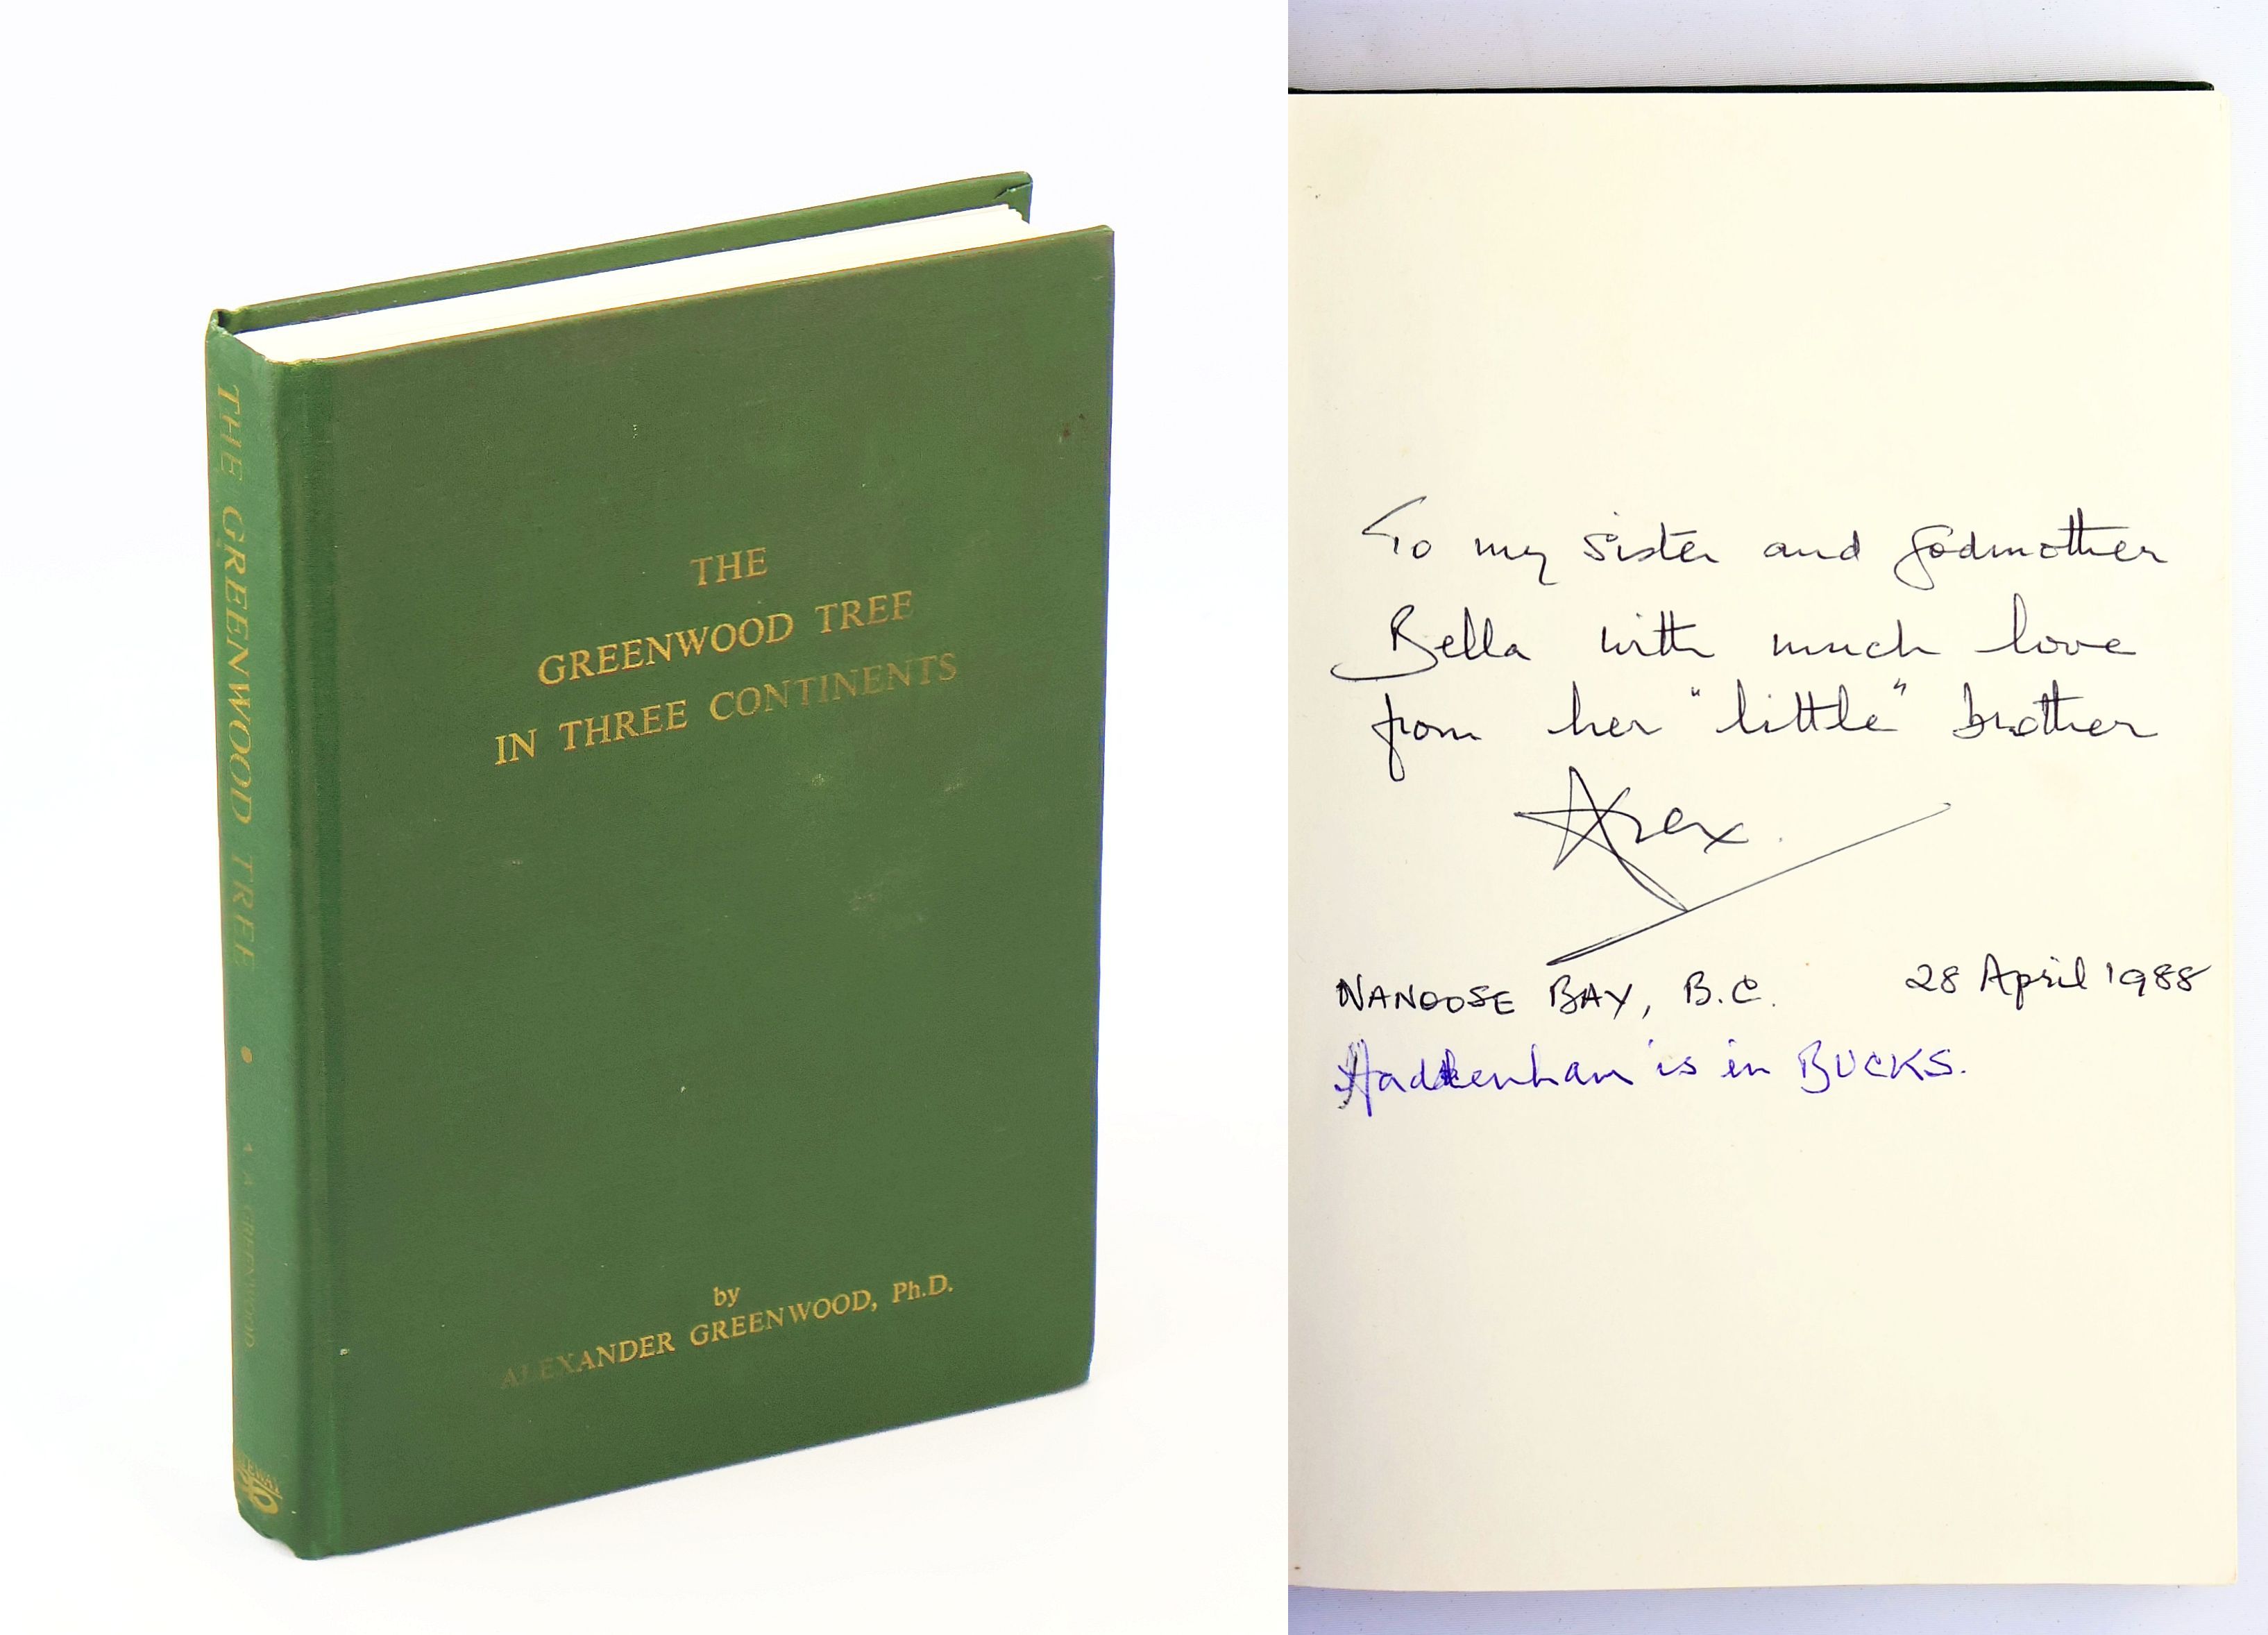 THE GREENWOOD TREE • A. A. GREENWOOD
THE
GREENWOOD TREE
IN THREE CONTINENTS
by
ALEXANDER GREENWOOD, Ph.D.
To my sister and godmother
Bella with much love
from her "little" brother
Alex.
NANOOSE BAY, B.C. 28 April 1988
Haddenham is in BUCKS.